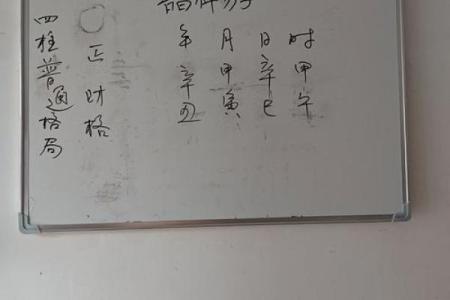 四柱普通格局
〇正财格
年辛丑
月甲寅
日辛巳
时甲午